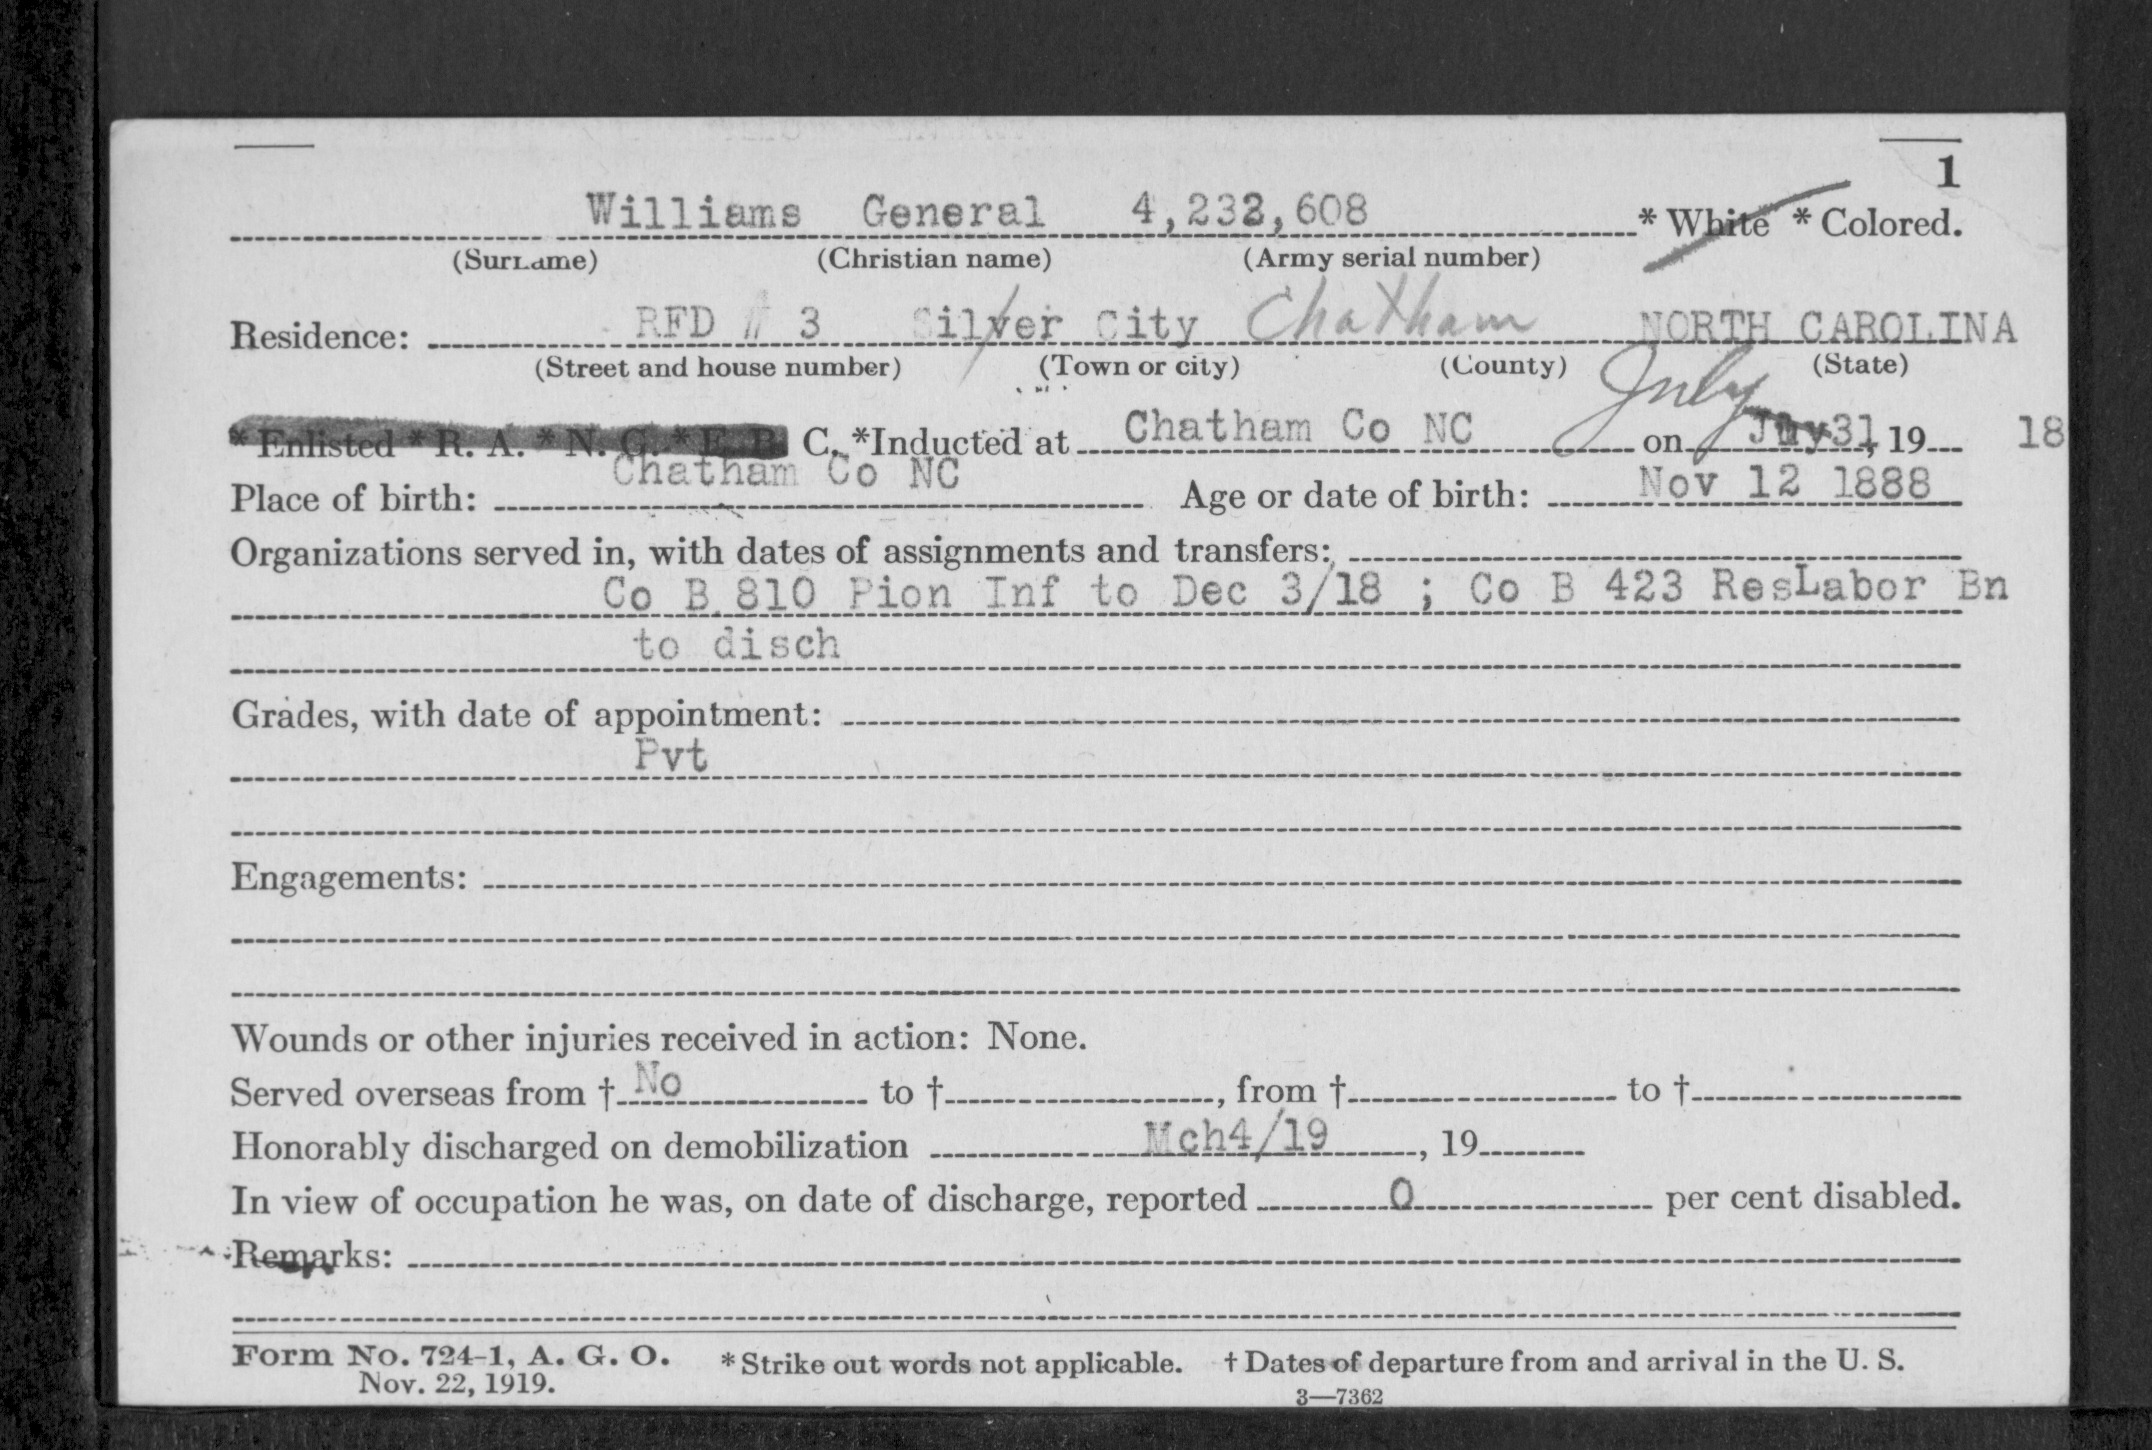 1
Williams General 4,232,608 * White * Colored.
(Surname) (Christian name) (Army serial number)
Residence: RFD # 3 Silver City Chatham NORTH CAROLINA
(Street and house number) (Town or city) (County) (State)
July
* Enlisted * R. A. * N. G. * E. R. C. *Inducted at Chatham Co NC on 31, 19 18
Place of birth: Chatham Co NC Age or date of birth: Nov 12 1888
Organizations served in, with dates of assignments and transfers:
Co B 810 Pion Inf to Dec 3/18 ; Co B 423 ResLabor Bn
to disch
Grades, with date of appointment:
Pvt
Engagements:
Wounds or other injuries received in action: None.
Served overseas from † No to †, from † to †
Honorably discharged on demobilization Mch4/19, 19
In view of occupation he was, on date of discharge, reported 0 per cent disabled.
Remarks:
Form No. 724-1, A. G. O. * Strike out words not applicable. † Dates of departure from and arrival in the U. S.
Nov. 22, 1919. 3—7362